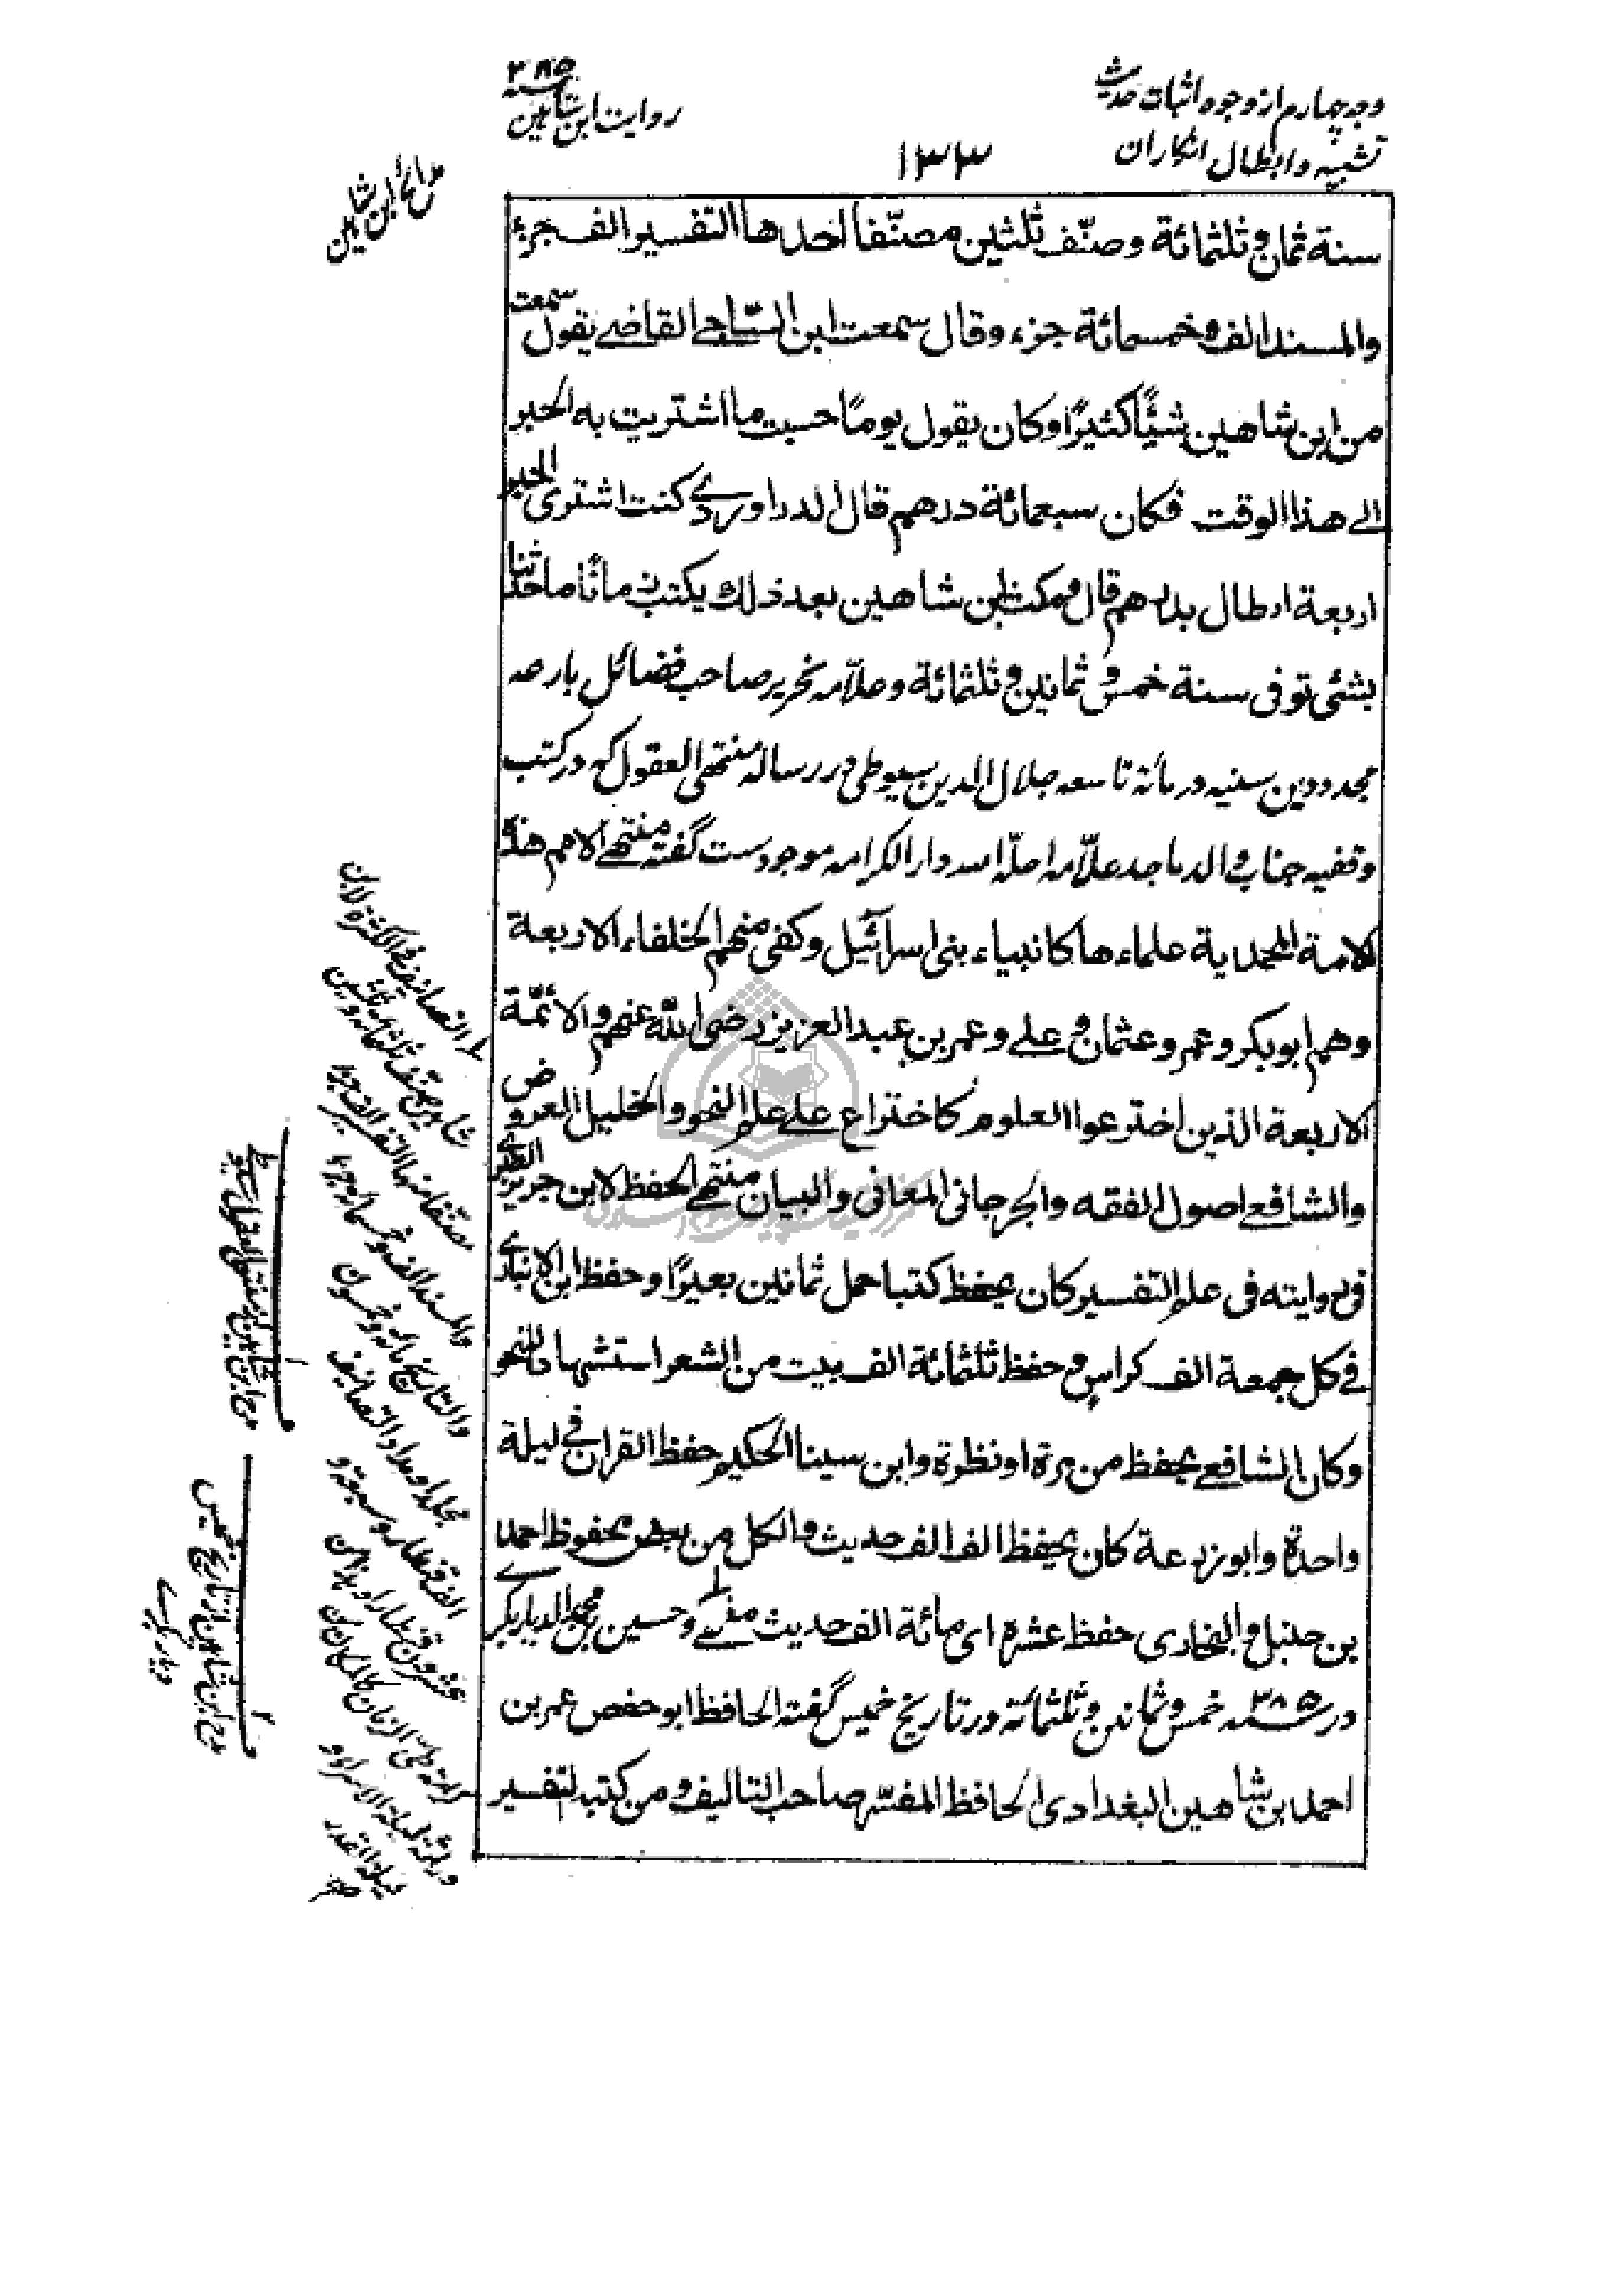 وجه چهارم از وجوه اثبات حدیث
تشبیه و ابطال انکاران
۱۳۳
۳۸۵
روایت ابن شاهین
مدائح ابن شاهین
سنة ثمان وثلثمائة وصنّف ثلثین مصنّفا احدها التفسیر الف جزء
والمسند الف وخمسمائة جزء وقال سمعت ابن الساجی القاضی یقول سمعت
من ابن شاهین شیئًا کثیرًا وکان یقول یومًا حسبت ما اشتریت به الحبر
الی هذا الوقت فکان سبعمائة درهم قال الدراوردی کنت اشتری الحبر
اربعة ارطال بدرهم قال ومکث ابن شاهین بعد ذلك یکتب زمانًا ما حدثنا
بشئی توفی سنة خمس وثمانین وثلثمائة وعلامه نحریر صاحب فضائل بارعه
مجدد دین سنیه در مائه تاسعه جلال الدین سیوطی در رساله منتهی العقول که در کتب
وقفیه جناب والد ماجد علّامه احلّه الله دار الکرامه موجودست گفته منتهی الامم هذه
الامة المحمدیة علماءها کانبیاء بنی اسرائیل وکفی منهم الخلفاء الاربعة
وهم ابوبکر وعمر وعثمان وعلی وعمر بن عبد العزیز رضی الله عنهم والائمّة
الاربعة الذین اخترعوا العلوم کاختراع علی علم النحو والخلیل العروض
والشافعی اصول الفقه والجرجانی المعانی والبیان منتهی الحفظ لابن جریر الطبری
فی روایته فی علم التفسیر کان یحفظ کتبا حمل ثمانین بعیرًا وحفظ ابن الانباری
فی کل جمعة الف کراس وحفظ ثلثمائة الف بیت من الشعر استشهادا للنحو
وکان الشافعی یحفظ من مرة او نظرة وابن سینا الحکیم حفظ القران فی لیلة
واحدة وابوزرعة کان یحفظ الف الف حدیث والکل من بعض محفوظ احمد
بن حنبل والبخاری حفظ عشره ای مائة الف حدیث وحسین بن محمد الدیاربکری
در سنه ۳۸۵ خمس وثمانین وثلثمائة در تاریخ خمیس گفته الحافظ ابو حفص عمر بن
احمد ابن شاهین البغدادی الحافظ المفسّر صاحب التالیف ومن کتبه التفسیر
التصانیف الکثرة لابن
شاهین صنّف ثلثمائة وثلثین
مصنّفا منها التفسیر الف جزء
والمسند الف وخمسمائة
والتاریخ مائة وخمسون
مجلدا ومداد التصانیف